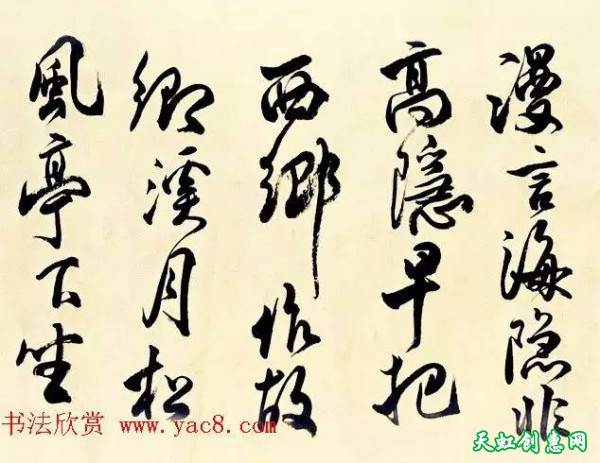 漫言海隐非
高隐早把
西鄉作故
鄉溪月松
風亭下坐
书法欣赏 www.yac8.com
天虹创惠网